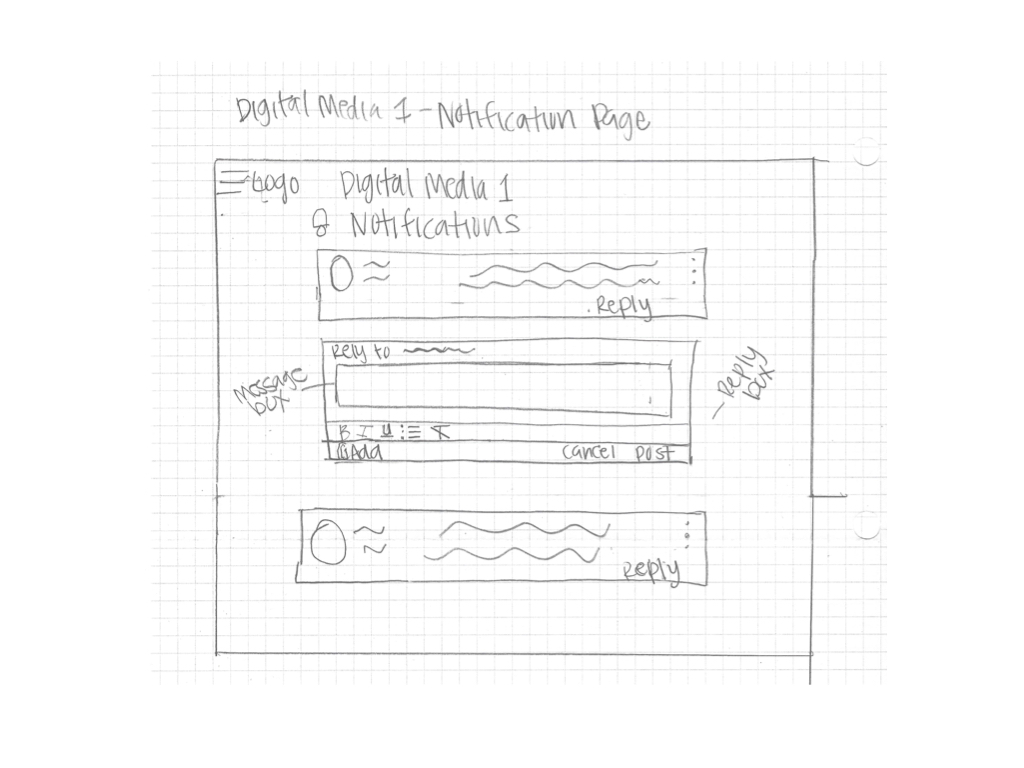 Digital Media 1 - Notification Page
Logo
Digital Media 1
Notifications
Reply
Rely to
Message box
Reply box
B I U T
Add
Cancel Post
Reply